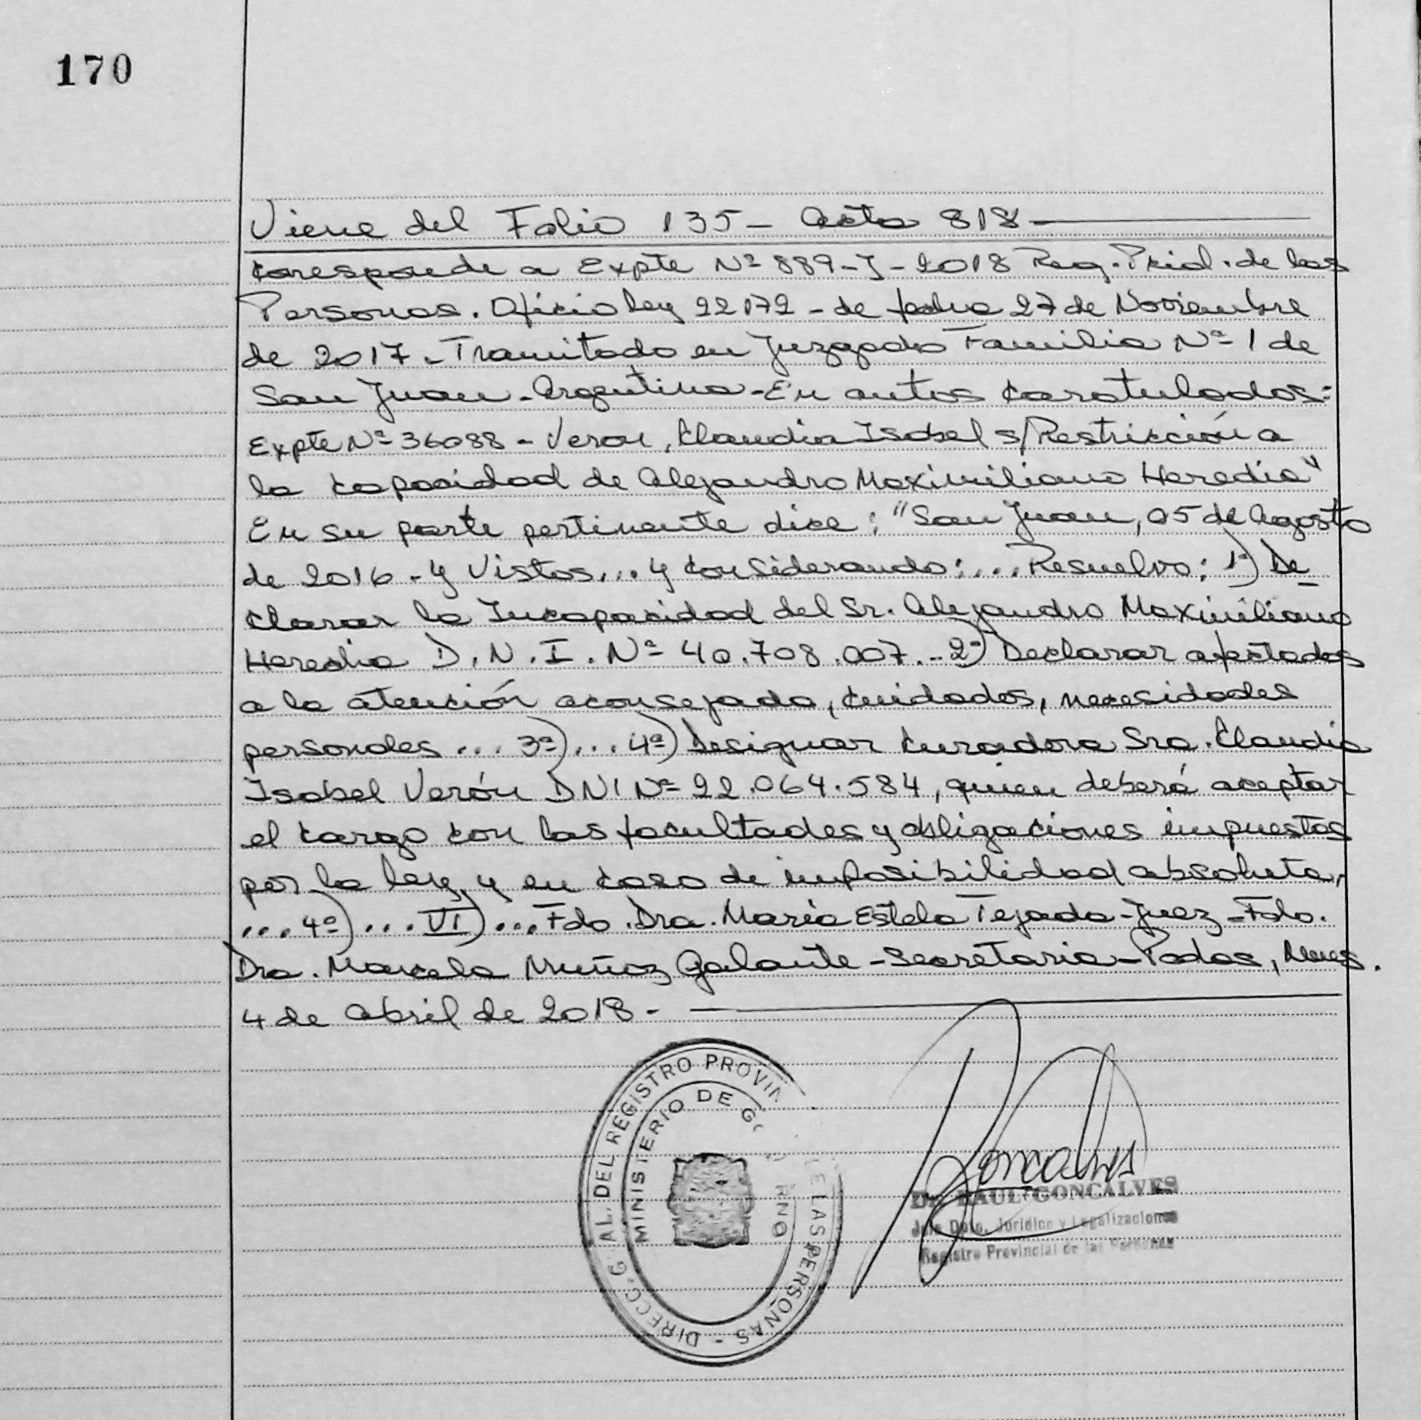 170
Viene del Folio 135 - Acta 818
Corresponde a Expte Nº 889-J-2018 Reg. Pcial. de las
Personas. Oficio Ley 22172 - de fecha 27 de Noviembre
de 2017. Tramitado en Juzgado Familia Nº 1 de
San Juan - Argentina - En autos caratulados:
Expte Nº 36088 - Veron, Claudia Isabel s/Restricción a
la capacidad de Alejandro Maximiliano Heredia"
En su parte pertinente dice: "San Juan, 05 de Agosto
de 2016 - y Vistos... y Considerando:... Resuelvo: 1º) De
clarar la Incapacidad del Sr. Alejandro Maximiliano
Heredia D.N.I. Nº 40.708.007.- 2º) Declarar afectados
a la atención aconsejada, cuidados, necesidades
personales ... 3º)... 4º) Designar Curadora Sra. Claudia
Isabel Verón DNI Nº 22.064.584, quien deberá aceptar
el cargo con las facultades y obligaciones impuestas
por la ley, y en caso de imposibilidad absoluta,
... 4º)... VI)... Fdo. Dra. María Estela Tejada - Juez - Fdo.
Dra. Marcela Muñoz Galante - Secretaria - Posadas, Mnes.
4 de Abril de 2018 -
DIRECC. G AL. DEL REGISTRO PROVIN E LAS PERSONAS -
MINISTERIO DE GO RNO
Goncalves
Dr. RAUL GONCALVES
Jefe Dpto. Jurídico y Legalizaciones
Registro Provincial de las Personas